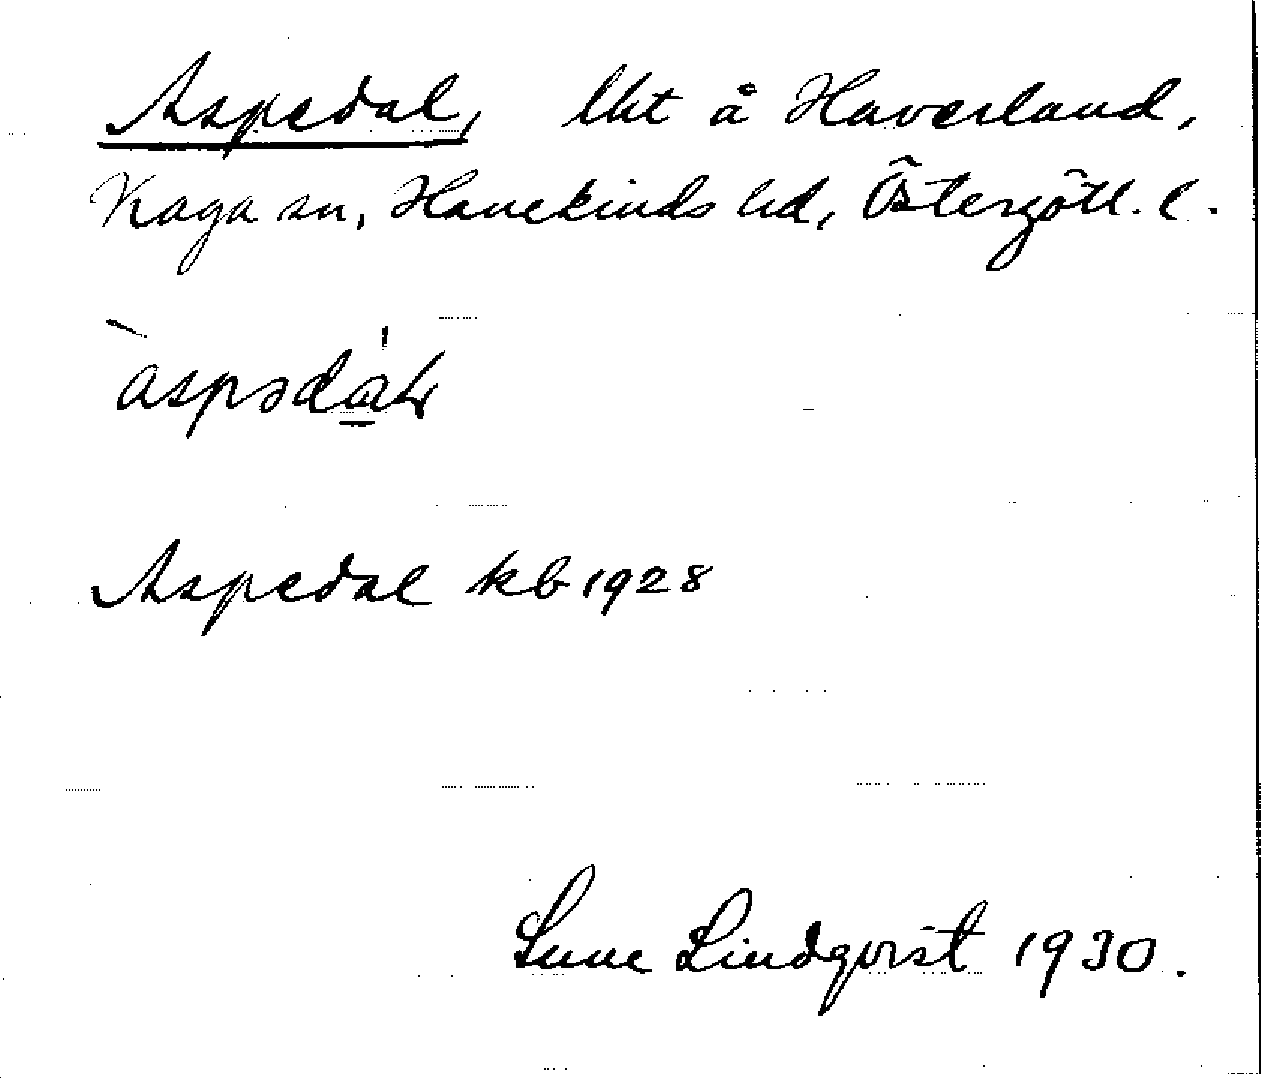 Aspedal, lht å Haverland,
Kaga sn, Hanekinds hd, Östergötl. l.
àspədá̱ɫ
Aspedal kb 1928
Sune Lindqvist 1930.